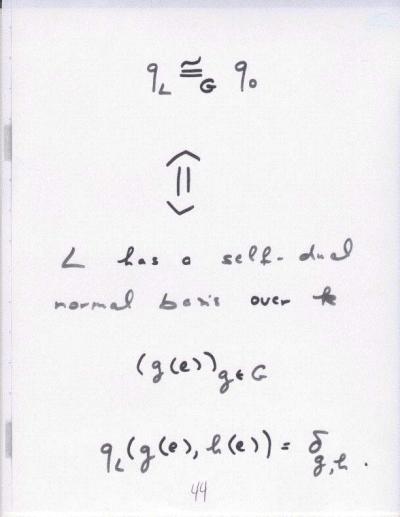 q_L ≅_G q_0
⇕
L has a self-dual
normal basis over k
(g(e))_{g∈G}
q_L(g(e), h(e)) = δ_{g,h}.
44